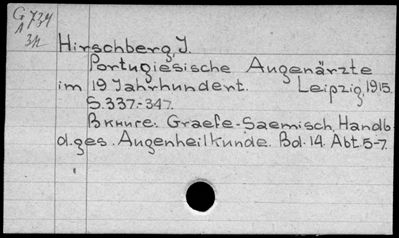 G 734
A 3н
Hirschberg, J.
Portugiesische Augenärzte
im 19 Jahrhundert. Leipzig, 1915.
S.337.-347.
Вкниге: Graefe-Saemisch, Handb.
d. ges. Augenheilkunde. Bd. 14. Abt. 5-7.